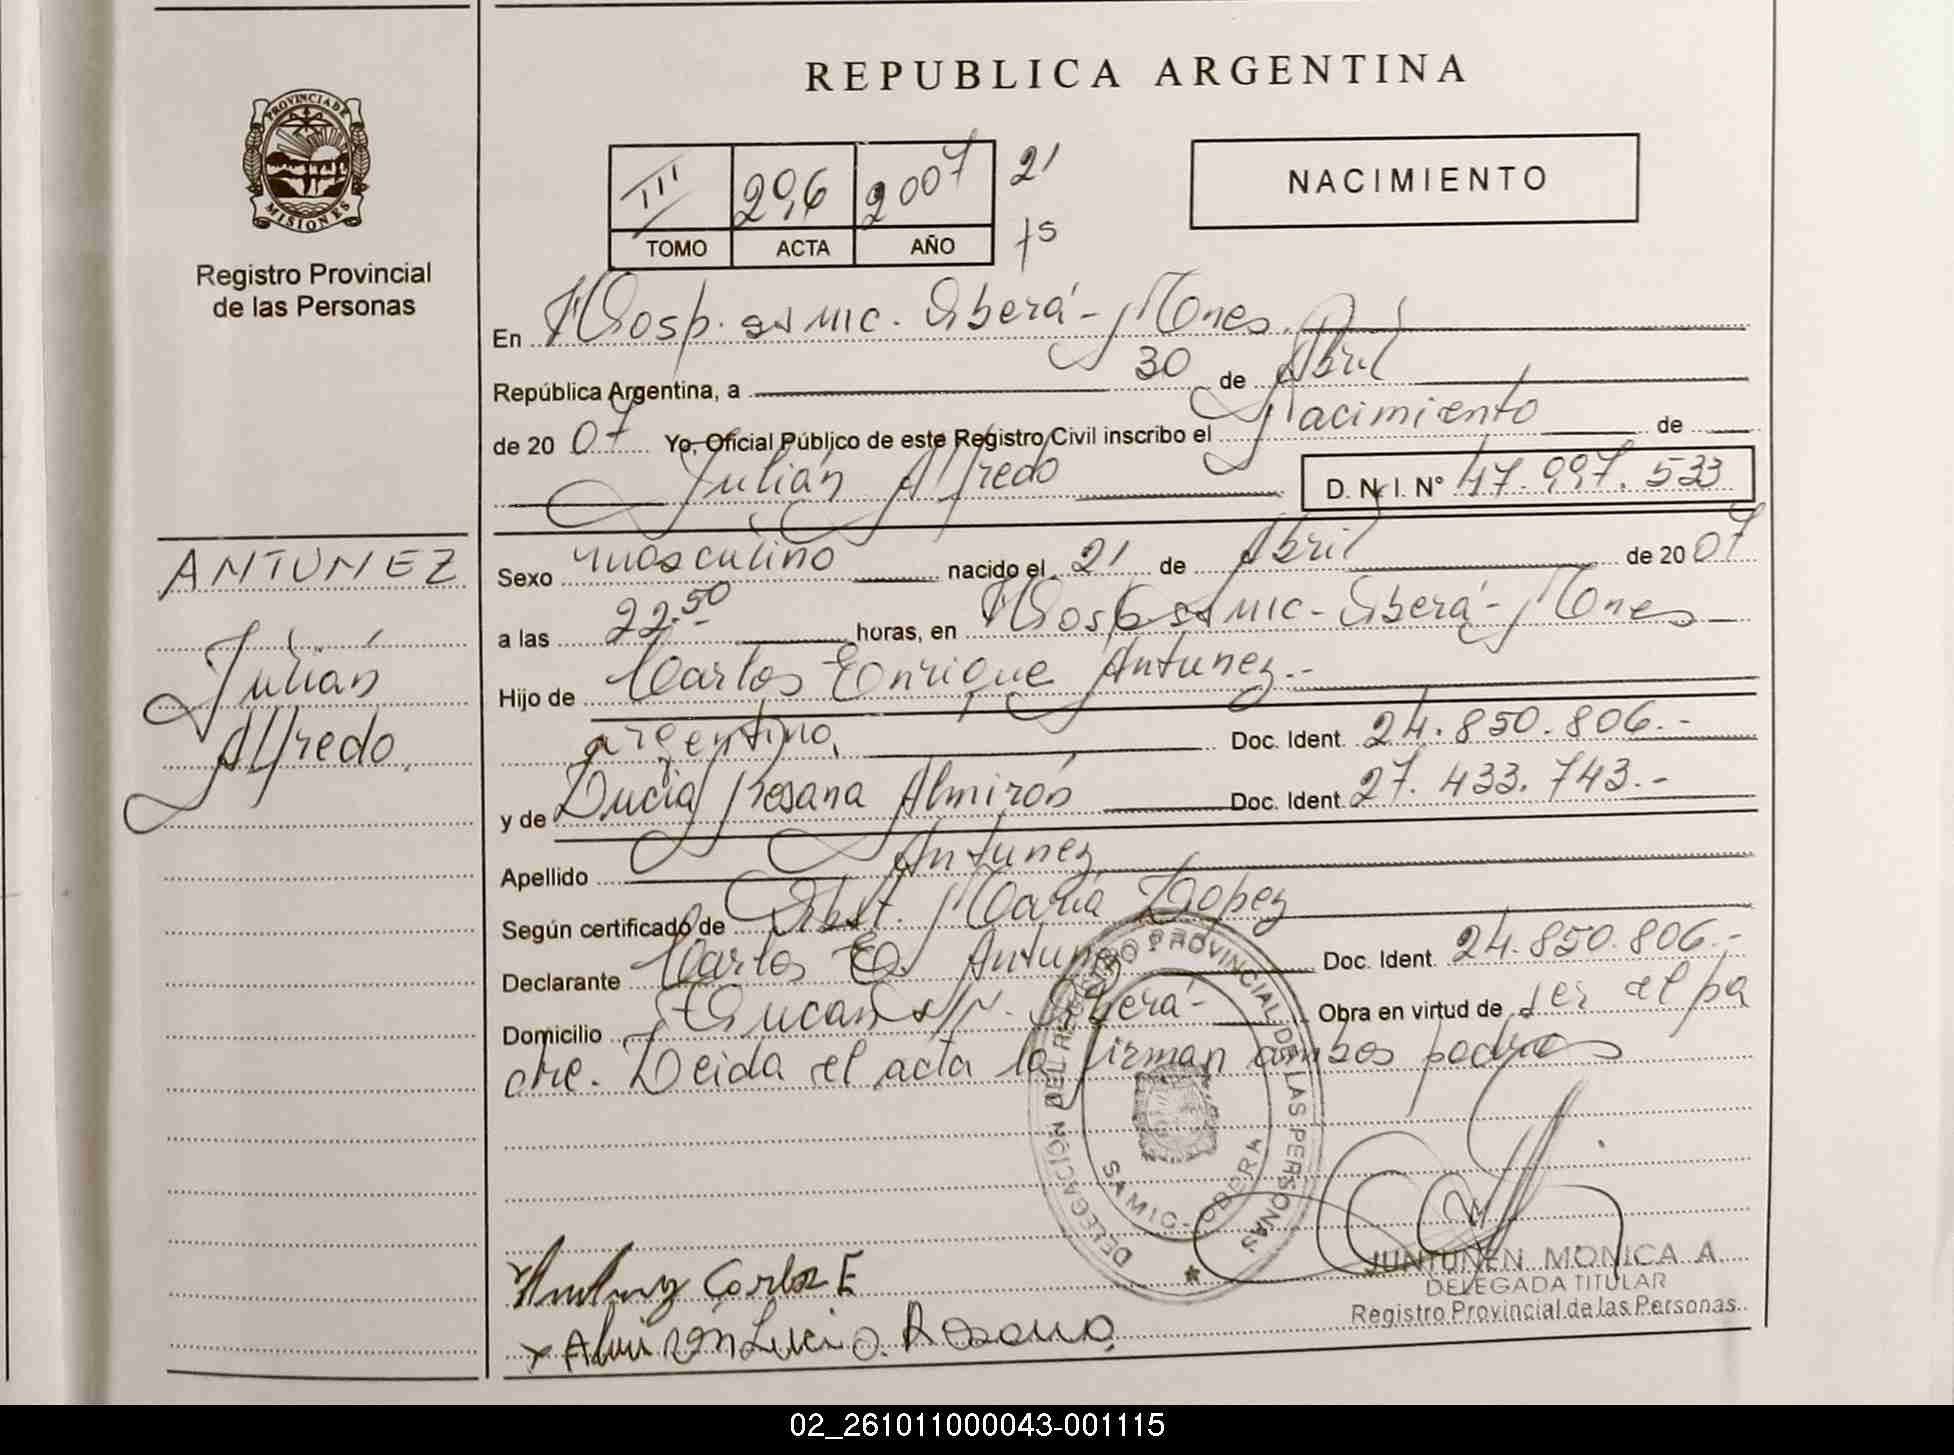 REPUBLICA ARGENTINA
PROVINCIA DE
MISIONES
Registro Provincial
de las Personas
III 296 2007 21
TOMO ACTA AÑO
NACIMIENTO
En Hosp. SAMIC. Oberá - Mnes.
República Argentina, a 30 de Abril
de 20 07 Yo, Oficial Público de este Registro Civil inscribo el Nacimiento de
Julián Alfredo D. N. I. N° 47.997.533
ANTUNEZ
Julián
Alfredo.
Sexo masculino nacido el 21 de Abril de 20 07
a las 22.50 horas, en Hosp SAMIC - Oberá - Mnes
Hijo de Carlos Enrique Antunez.-
argentino, Doc. Ident. 24.850.806.-
y de Lucia Rosana Almirón Doc. Ident 27.433.743.-
Apellido Antunez
Según certificado de Obst. Maria Lopez
Declarante Carlos E. Antunez Doc. Ident. 24.850.806.-
Domicilio Tucan s/n. Oberá - Obra en virtud de ser el pa
dre. Leida el acta la firman ambos padres
DELEGACION DEL REGISTRO PROVINCIAL DE LAS PERSONAS
SAMIC - OBERA
Antunez Carlos E
x Almiron Lucia Rosana
JUNTUNEN MONICA A
DELEGADA TITULAR
Registro Provincial de las Personas
02_261011000043-001115